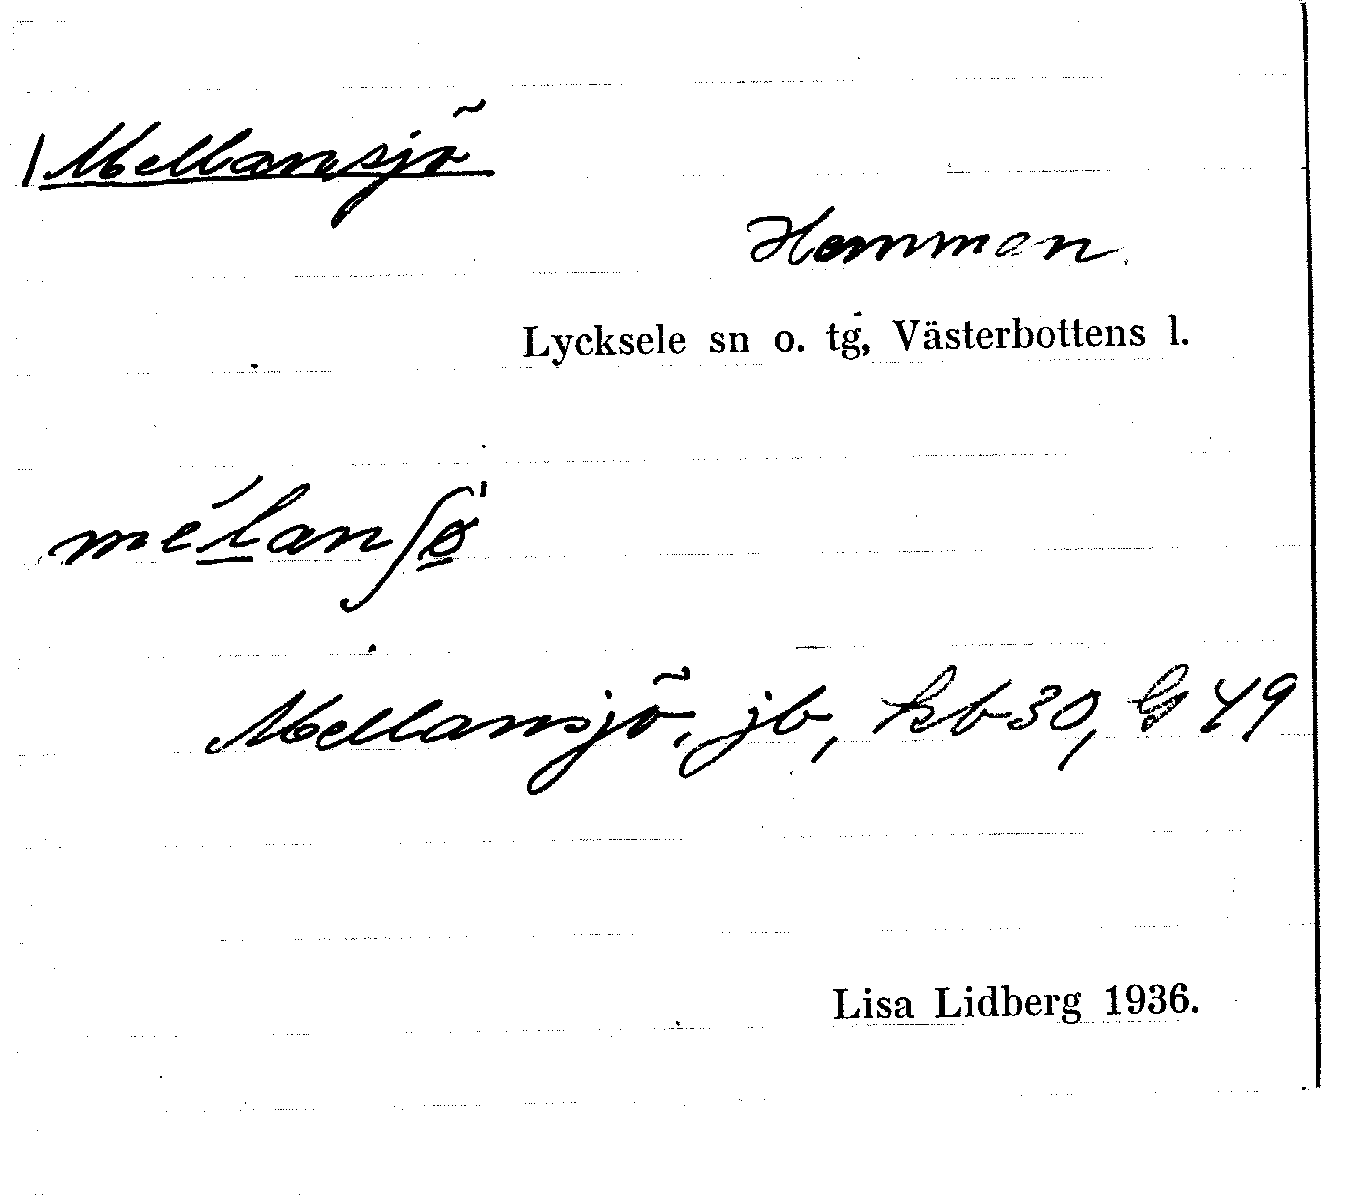 / Mellansjö
Hemman
Lycksele sn o. tg, Västerbottens l.
mélanʃø̱'
Mellansjö, jb, kb 30, G 49
Lisa Lidberg 1936.